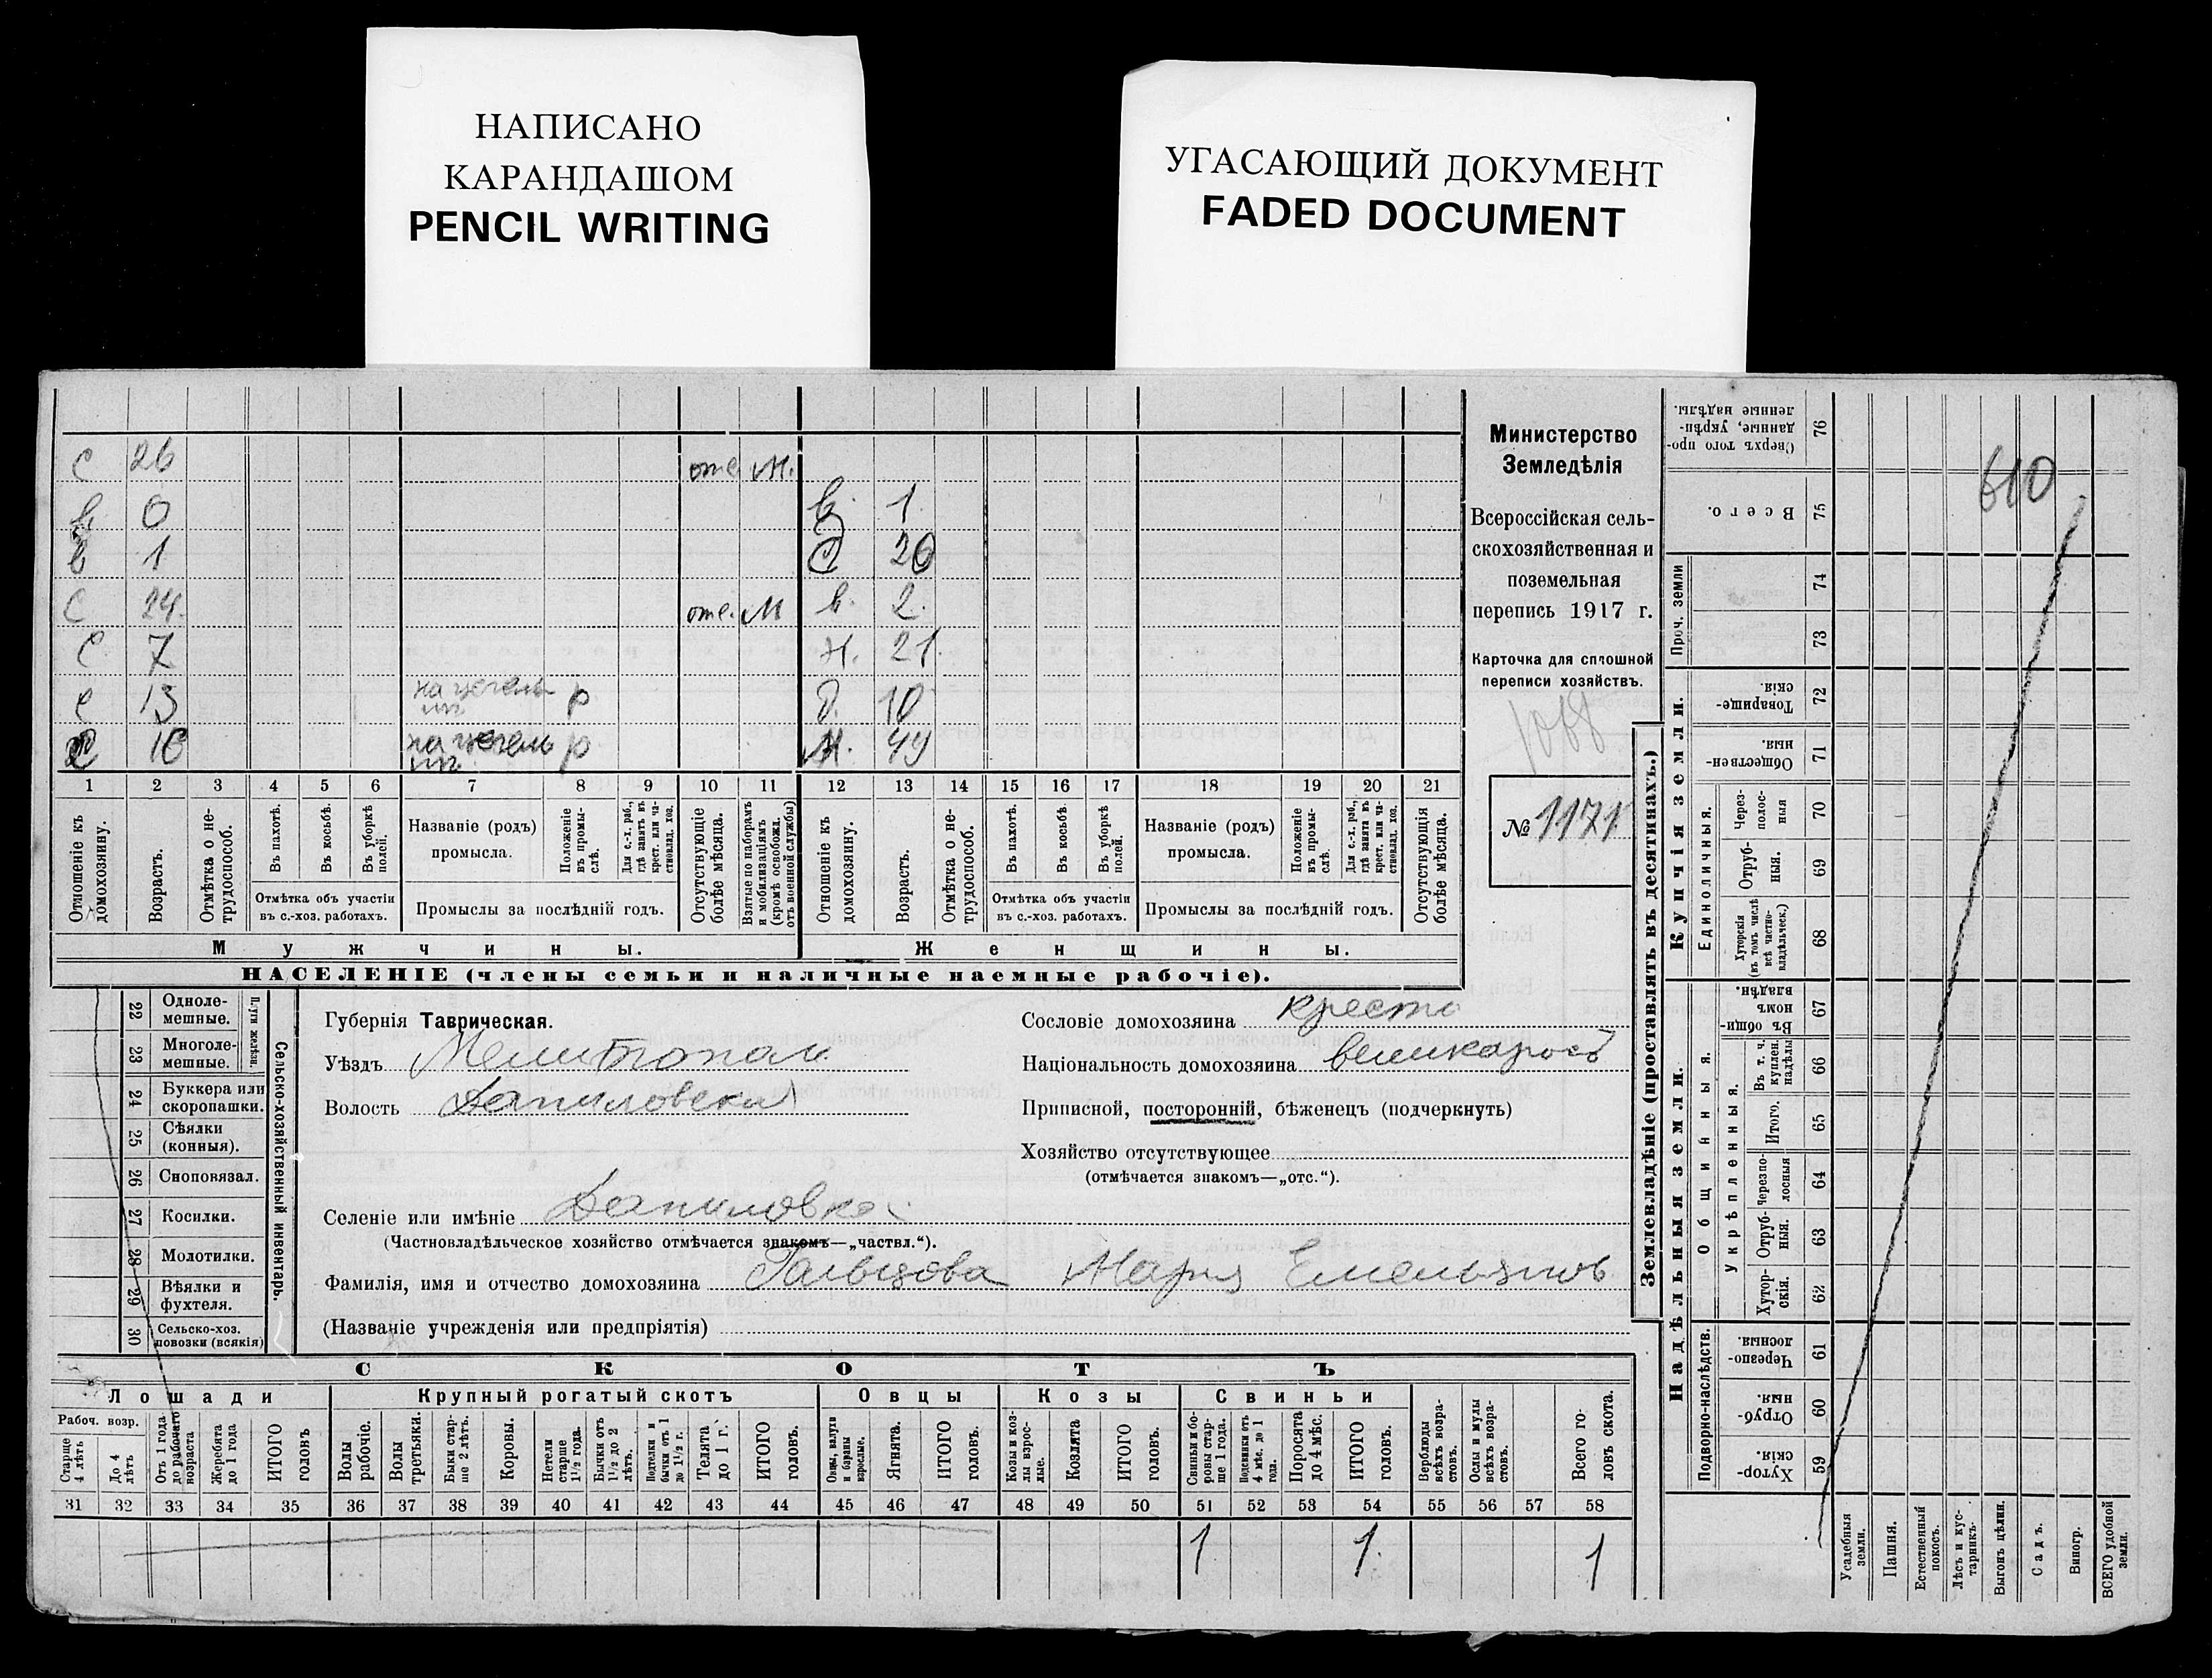 НАПИСАНО
КАРАНДАШОМ
PENCIL WRITING
УГАСАЮЩИЙ ДОКУМЕНТ
FADED DOCUMENT
с 26 отс. М.
в. 0 в. 1
в 1 С 26
с 24. отс. М в. 2.
с. 7 н. 21.
с 13 р д. 10
с 16 р М. 44
1 2 3 4 5 6 7 8 9 10 11 12 13 14 15 16 17 18 19 20 21
Отношеніе къ домохозяину.
Возрастъ.
Отмѣтка о не-трудоспособ.
Въ пахотѣ.
Въ косьбѣ.
Въ уборкѣ полей.
Отмѣтка объ участіи
въ с.-хоз. работахъ.
Названіе (родъ)
промысла.
Положеніе въ промы-слѣ.
Для с.-х. раб., гдѣ занятъ въ крест. или ча-стновлад. хоз.
Промыслы за послѣдній годъ.
Отсутствующіе болѣе мѣсяца.
Взятые по наборамъ и мобилизаціямъ (кромѣ освобожд. отъ военной службы)
Отношеніе къ домохозяину.
Возрастъ.
Отмѣтка о не-трудоспособ.
Въ пахотѣ.
Въ косьбѣ.
Въ уборкѣ полей.
Отмѣтка объ участіи
въ с.-хоз. работахъ.
Названіе (родъ)
промысла.
Положеніе въ промы-слѣ.
Для с.-х. раб., гдѣ занята въ крест. или ча-стновлад. хоз.
Промыслы за послѣдній годъ.
Отсутствующія болѣе мѣсяца.
Мужчины.
Женщины.
НАСЕЛЕНІЕ (члены семьи и наличные наемные рабочіе).
Министерство
Земледѣлія
Всероссійская сель-
скохозяйственная и
поземельная
перепись 1917 г.
Карточка для сплошной
переписи хозяйствъ.
1068
№ 1171
22 Одноле-
мешные.
23 Многоле-
мешные.
Плуги желѣзн.
24 Буккера или
скоропашки.
25 Сѣялки
(конныя).
26 Сноповязал.
27 Косилки.
28 Молотилки.
29 Вѣялки и
фухтеля.
30 Сельско-хоз.
повозки (всякія)
Сельско-хозяйственный инвентарь.
Губернія Таврическая.
Уѣздъ Мелитопол
Волость Даниловска
Селеніе или имѣніе Даниловка
(Частновладѣльческое хозяйство отмѣчается знакомъ—„частвл.“).
Фамилія, имя и отчество домохозяина Гальцова Мария Емельянов
(Названіе учрежденія или предпріятія)
Сословіе домохозяина крест
Національность домохозяина великорос
Приписной, посторонній, бѣженецъ (подчеркнуть)
Хозяйство отсутствующее
(отмѣчается знакомъ—„отс.“).
СКОТЪ
Лошади
Крупный рогатый скотъ
Овцы
Козы
Свиньи
Рабоч. возр.
Старше 4 лѣтъ
До 4 лѣтъ
Отъ 1 года до рабочаго возраста
Жеребята до 1 года
ИТОГО головъ
Волы рабочіе.
Волы третьяки.
Быки стар-ше 2 лѣтъ.
Коровы.
Нетели старше 1½ года.
Бычки отъ 1½ до 2 лѣтъ.
Подтелки и бычки отъ 1 до 1½ г.
Телята до 1 г.
ИТОГО головъ.
Овцы, валухи и бараны взрослые.
Ягнята.
ИТОГО головъ.
Козы и коз-лы взрос-лые.
Козлята
ИТОГО головъ.
Свиньи и бо-ровы стар-ше 1 года.
Подсвинки отъ 4 мѣс. до 1 года.
Поросята до 4 мѣс.
ИТОГО головъ.
Верблюды всѣхъ возра-стовъ.
Ослы и мулы всѣхъ возра-стовъ.
Всего го-ловъ скота.
31 32 33 34 35 36 37 38 39 40 41 42 43 44 45 46 47 48 49 50 51 52 53 54 55 56 57 58
1 1. 1
Землевладѣніе (проставлять въ десятинахъ.)
Сверхъ того про-данные, укрѣп-ленные надѣлы. 76
Всего. 75
Проч. земли
74
73
Купчія земли.
Товарище-скія. 72
Обществен-ныя. 71
Единоличныя.
Через-полос-ныя 70
Отруб-ныя. 69
Хуторскія (въ томъ числѣ всѣ частно-владѣльческ.) 68
Надѣльныя земли.
Общинныя.
Въ общи-номъ владѣн. 67
Укрѣпленныя.
Въ т. ч. куплен. надѣлы 66
Итого. 65
Черезпо-лосныя 64
Отруб-ныя. 63
Хутор-скія. 62
Подворно-наслѣдств.
Черезпо-лосныя 61
Отруб-ныя. 60
Хутор-скія. 59
Усадебныя земли.
Пашня.
Естественный покосъ.
Лѣсъ и кус-тарникъ.
Выгонъ цѣлин.
Садъ.
Виногр.
ВСЕГО удобной земли.
610